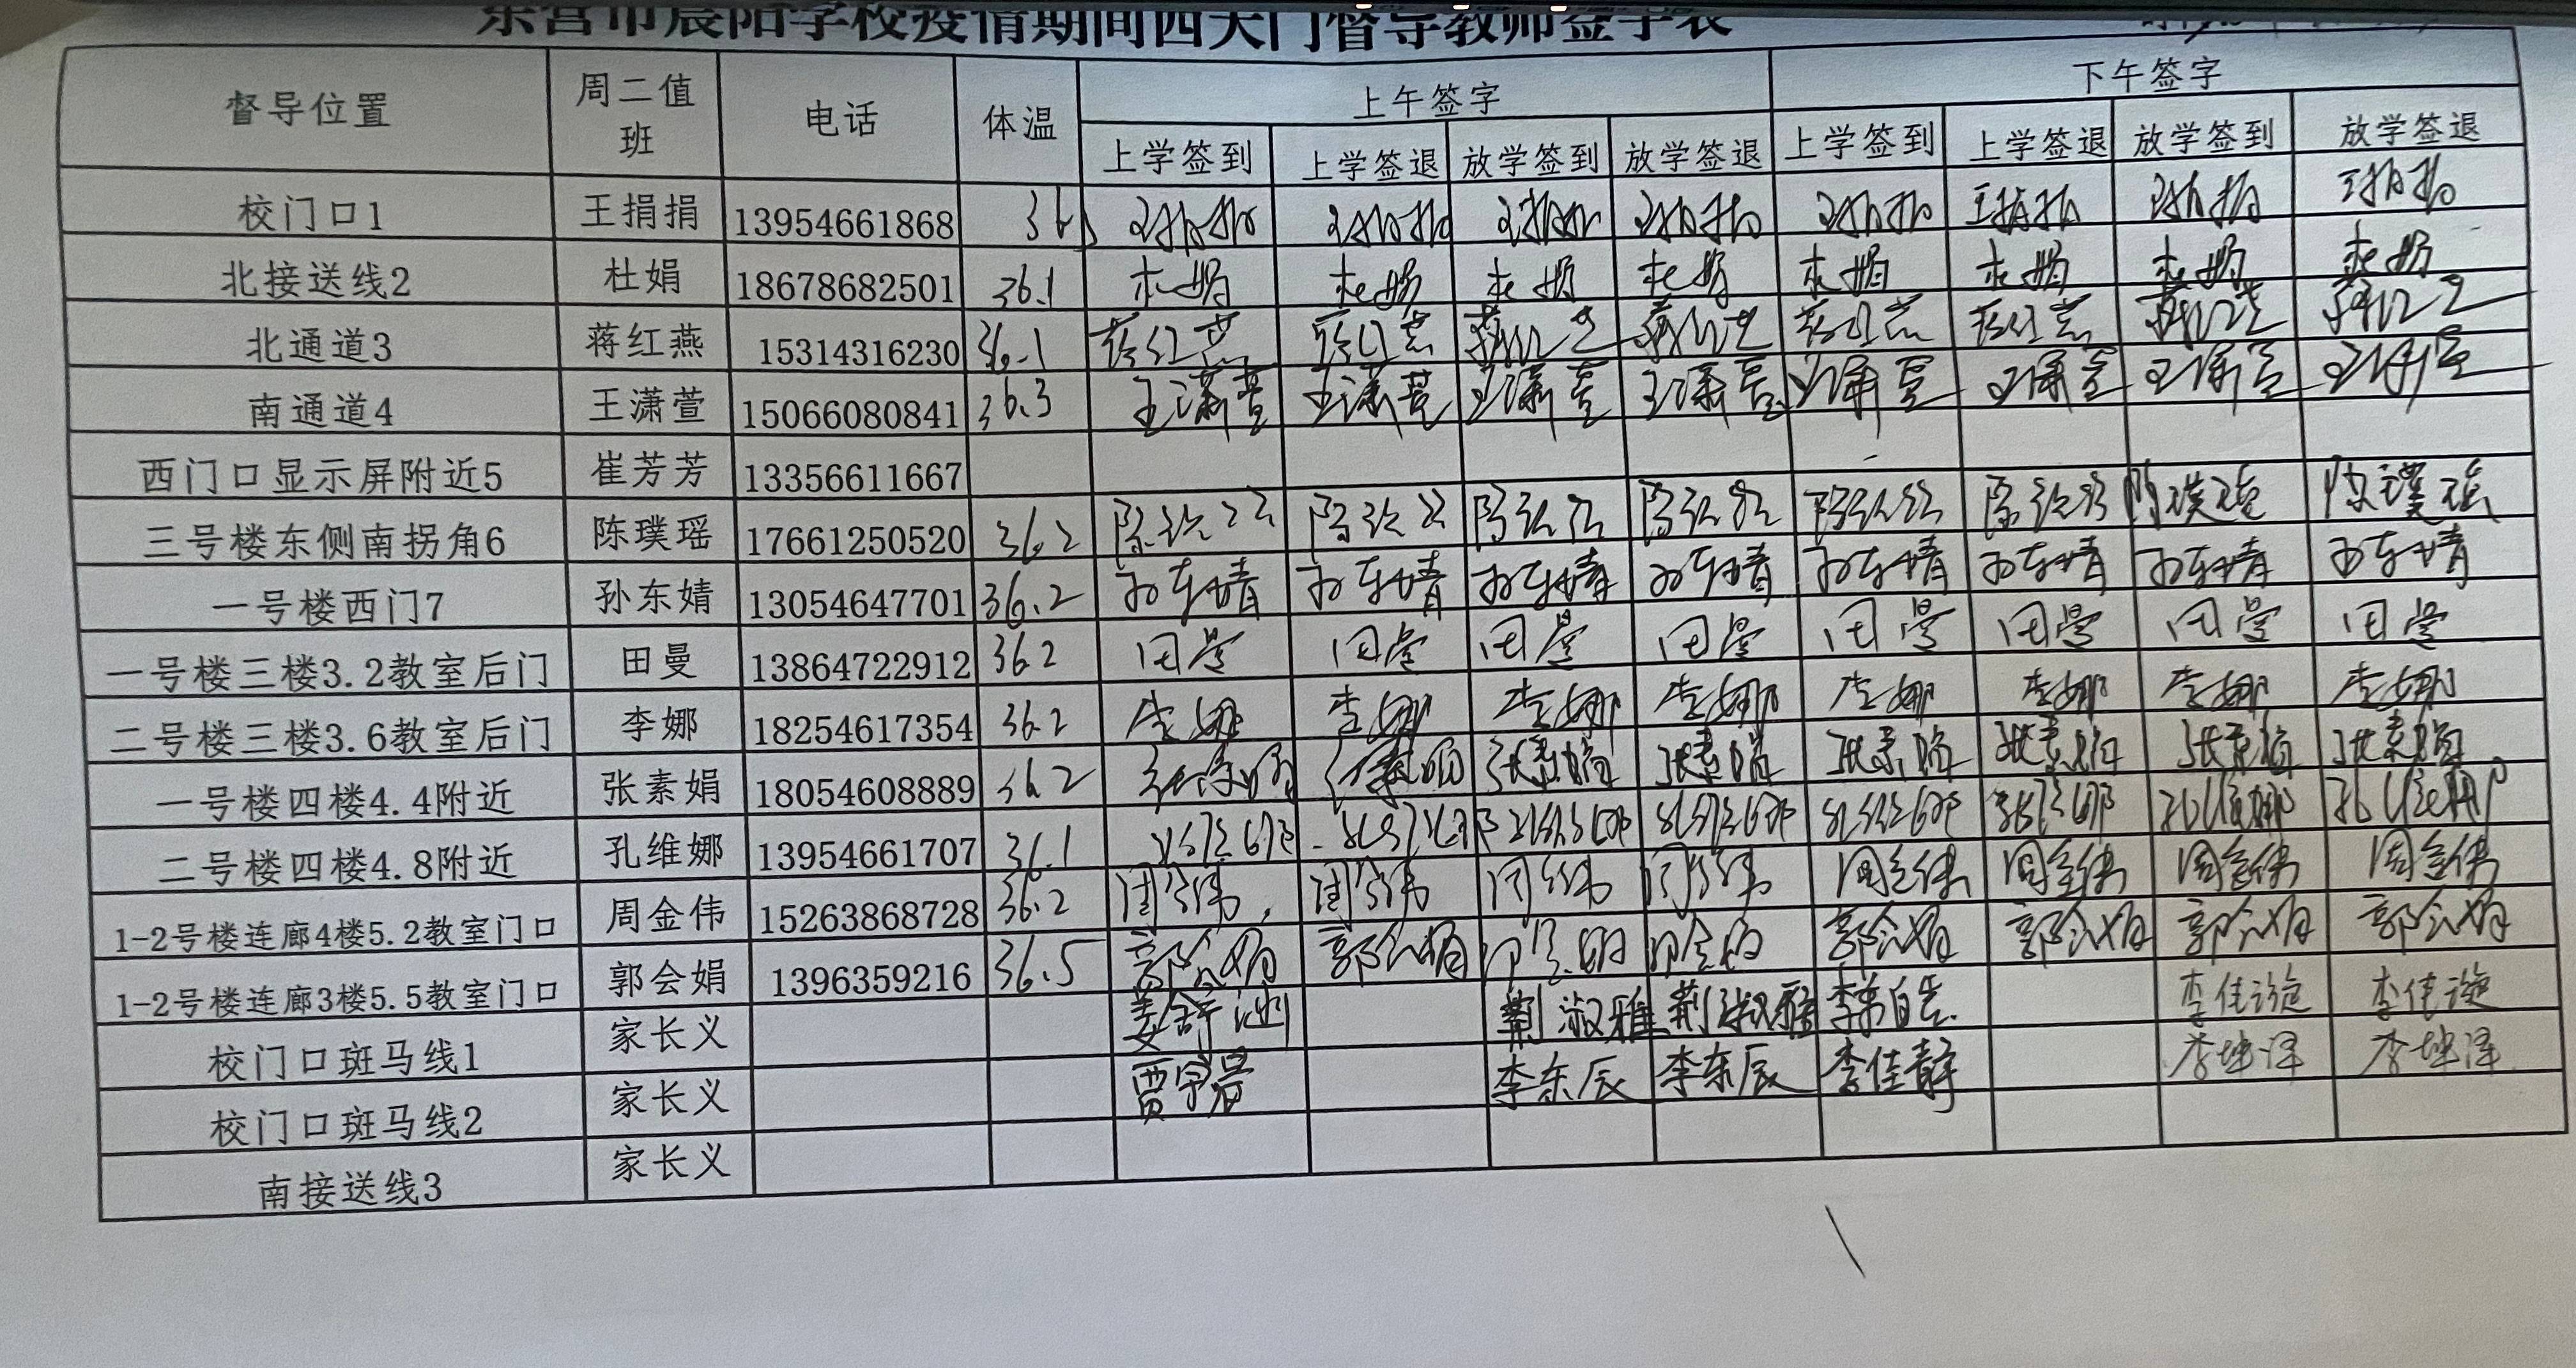 东营市晨阳学校疫情期间四大门督导教师签字表
督导位置 周二值班 电话 体温 上午签字 下午签字
上学签到 上学签退 放学签到 放学签退 上学签到 上学签退 放学签到 放学签退
校门口1 王捐捐 13954661868 王捐捐 王捐捐 王捐捐 王捐捐 王捐捐 王捐捐 王捐捐 王捐捐
北接送线2 杜娟 18678682501 36.1 杜娟 杜娟 杜娟 杜娟 杜娟 杜娟 杜娟 杜娟
北通道3 蒋红燕 15314316230 36.1 蒋红燕 蒋红燕 蒋红燕 蒋红燕 蒋红燕 蒋红燕 蒋红燕 蒋红燕
南通道4 王潇萱 15066080841 36.3 王潇萱 王潇萱 王潇萱 王潇萱 王潇萱 王潇萱 王潇萱 王潇萱
西门口显示屏附近5 崔芳芳 13356611667
三号楼东侧南拐角6 陈璞瑶 17661250520 36.2 陈璞瑶 陈璞瑶 陈璞瑶 陈璞瑶 陈璞瑶 陈璞瑶 陈璞瑶 陈璞瑶
一号楼西门7 孙东婧 13054647701 36.2 孙东婧 孙东婧 孙东婧 孙东婧 孙东婧 孙东婧 孙东婧 孙东婧
一号楼三楼3.2教室后门 田曼 13864722912 36.2 田曼 田曼 田曼 田曼 田曼 田曼 田曼 田曼
二号楼三楼3.6教室后门 李娜 18254617354 36.2 李娜 李娜 李娜 李娜 李娜 李娜 李娜 李娜
一号楼四楼4.4附近 张素娟 18054608889 36.2 张素娟 张素娟 张素娟 张素娟 张素娟 张素娟 张素娟 张素娟
二号楼四楼4.8附近 孔维娜 13954661707 36.1 孔维娜 孔维娜 孔维娜 孔维娜 孔维娜 孔维娜 孔维娜 孔维娜
1-2号楼连廊4楼5.2教室门口 周金伟 15263868728 36.2 周金伟 周金伟 周金伟 周金伟 周金伟 周金伟 周金伟 周金伟
1-2号楼连廊3楼5.5教室门口 郭会娟 1396359216 36.5 郭会娟 郭会娟 郭会娟 郭会娟 郭会娟 郭会娟 郭会娟 郭会娟
校门口斑马线1 家长义 荆淑雅 荆淑雅
校门口斑马线2 家长义 贾宇晨 李东辰 李东辰 李佳静 李坤泽 李坤泽
南接送线3 家长义